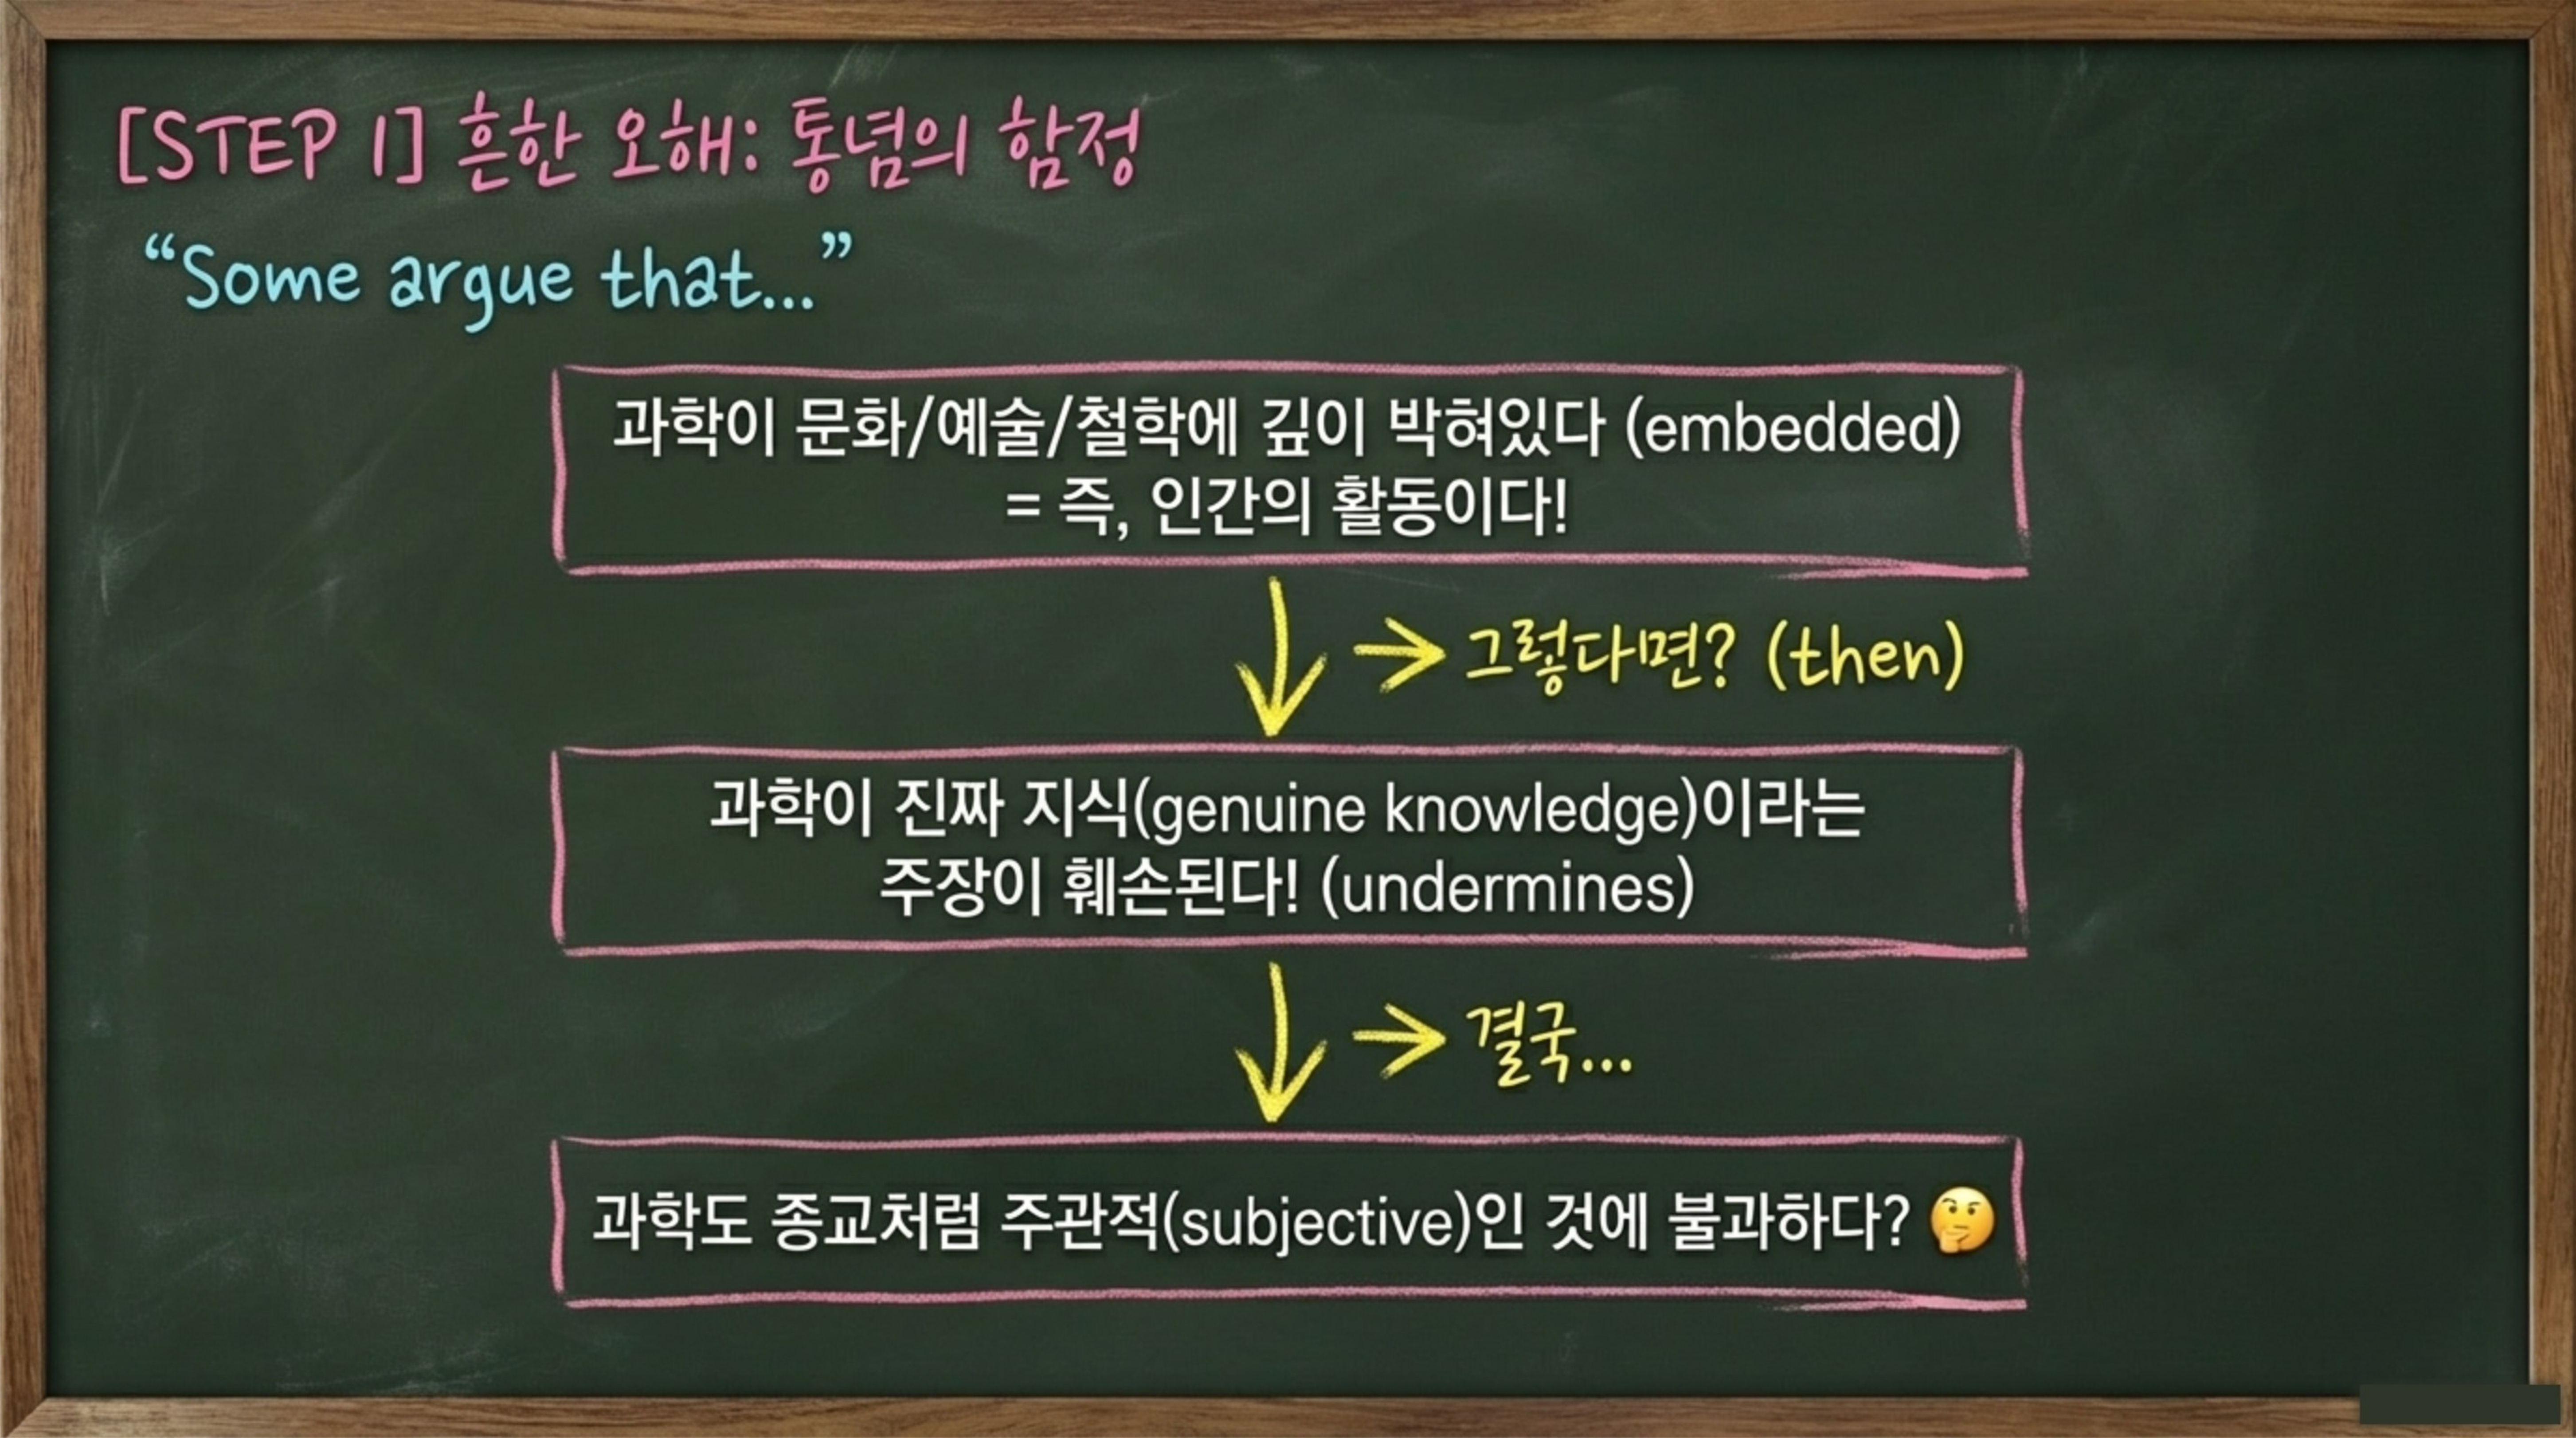 [STEP 1] 흔한 오해: 통념의 함정
“Some argue that...”
과학이 문화/예술/철학에 깊이 박혀있다 (embedded)
= 즉, 인간의 활동이다!
→ 그렇다면? (then)
과학이 진짜 지식(genuine knowledge)이라는
주장이 훼손된다! (undermines)
→ 결국...
과학도 종교처럼 주관적(subjective)인 것에 불과하다? 🤔